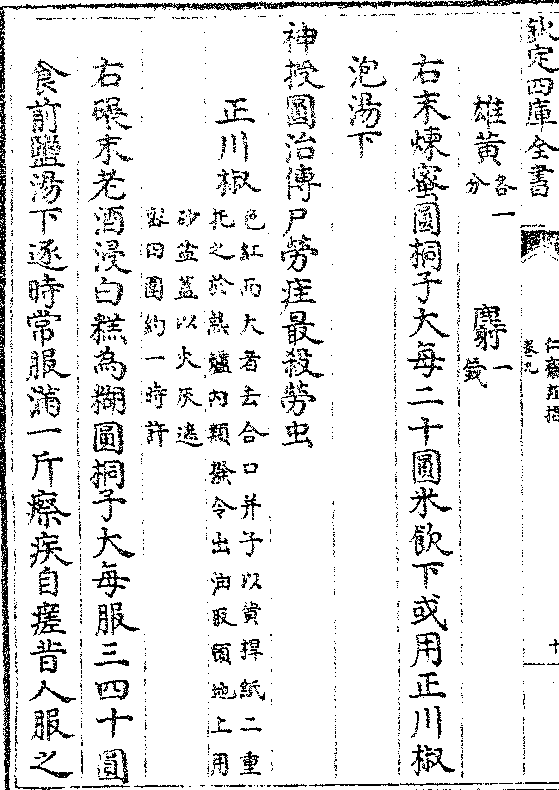 欽定四庫全書
仁齋直指
卷九
十
雄黃各一分 麝一錢
右末煉蜜圓桐子大每二十圓米飲下或用正川椒
泡湯下
神授圓治傳尸勞疰最殺勞虫
正川椒
色紅而大者去合口并子以黃捍紙二重
托之於熱爐內頻撥令出油取頓地上用
砂盆蓋以火灰遮
密四圍約一時許
右碾末老酒浸白糕為糊圓桐子大每服三四十圓
食前鹽湯下逐時常服滿一斤瘵疾自瘥昔人服之